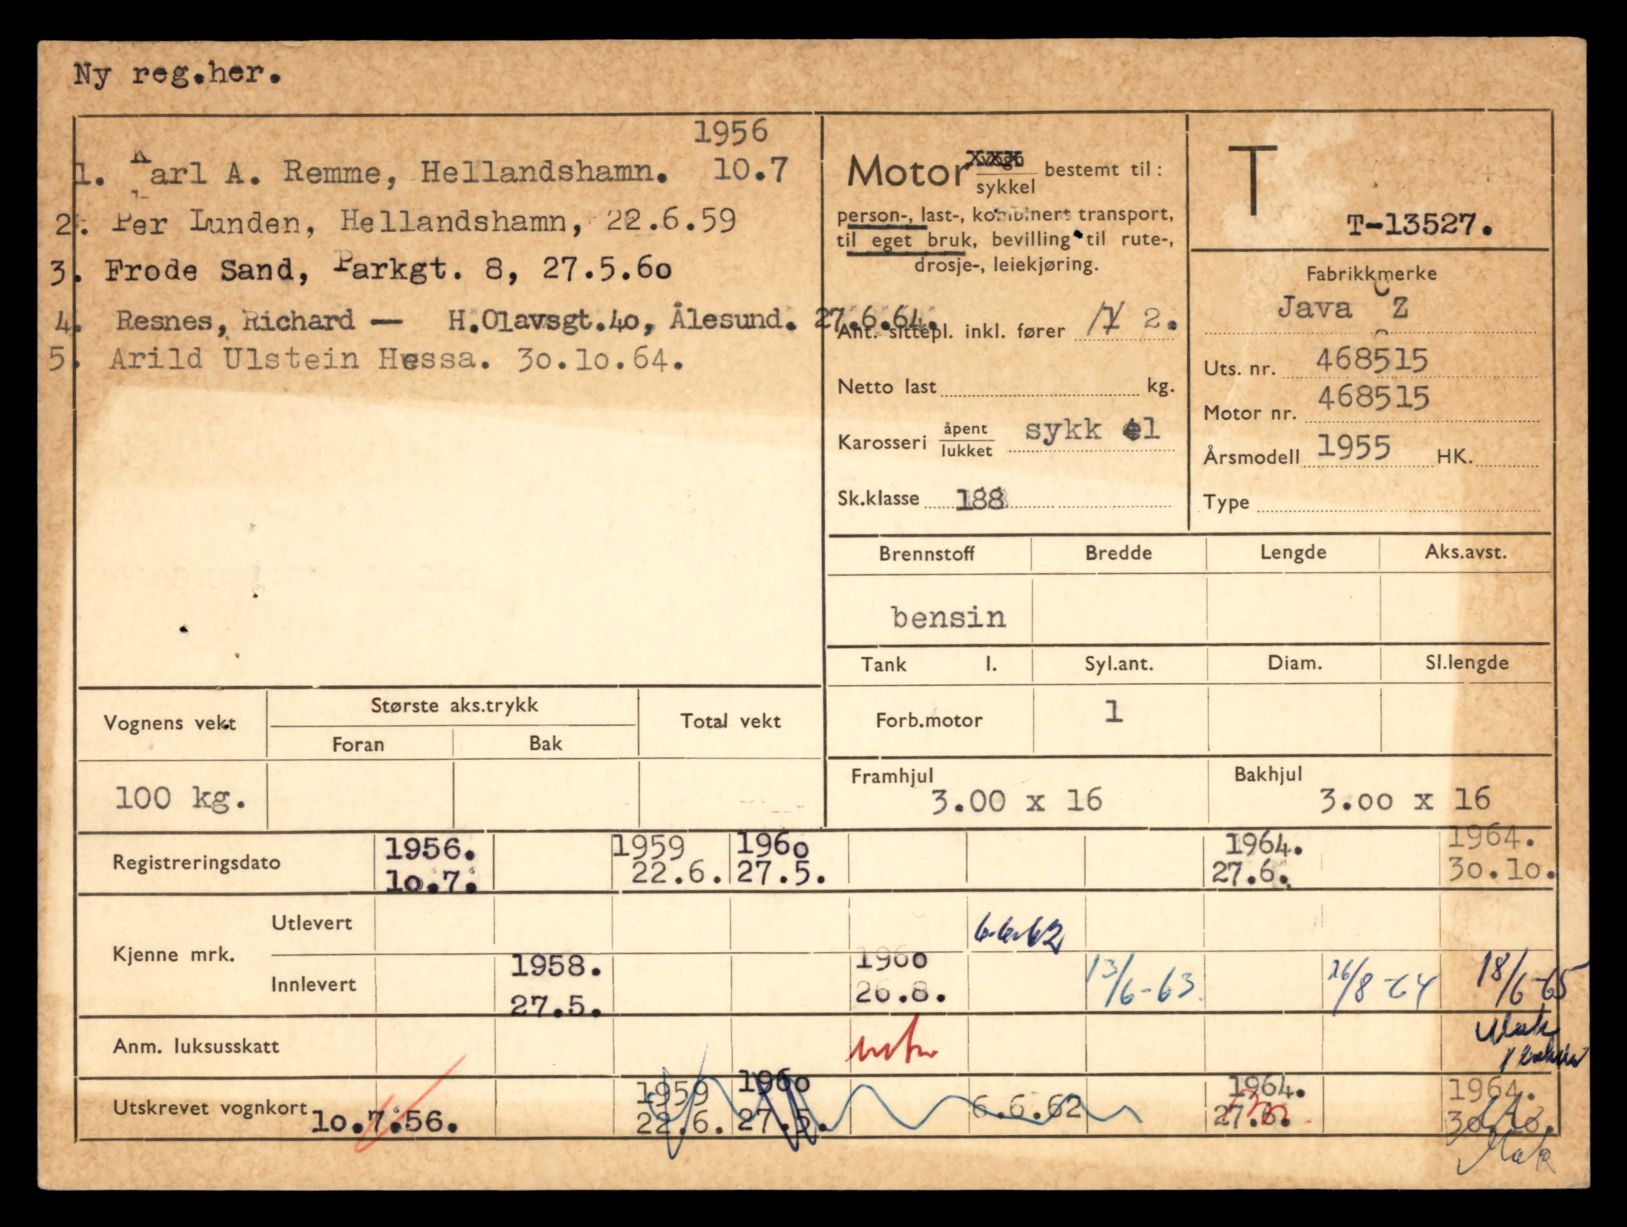 Ny reg.her.
1956
1. Karl A. Remme, Hellandshamn. 10.7
2. Per Lunden, Hellandshamn, 22.6.59
3. Frode Sand, Parkgt. 8, 27.5.60
4. Resnes, Richard — H.Olavsgt.40, Ålesund. 27.6.64.
5. Arild Ulstein Hessa. 30.10.64.
Motor
sykkel
bestemt til:
person-, last-, kombinert transport,
til eget bruk, bevilling til rute-,
drosje-, leiekjøring.
Ant. sittepl. inkl. fører 2.
Netto last kg.
Karosseri åpent
lukket
sykk el
Sk.klasse 188
T
T-13527.
Fabrikkmerke
Java CZ
Uts. nr. 468515
Motor nr. 468515
Årsmodell 1955 HK.
Type
Brennstoff Bredde Lengde Aks.avst.
bensin
Tank l. Syl.ant. Diam. Sl.lengde
Forb.motor 1
Vognens vekt Største aks.trykk Total vekt
Foran Bak
100 kg.
Framhjul Bakhjul
3.00 x 16 3.00 x 16
Registreringsdato 1956. 1959 1960 1964. 1964.
10.7. 22.6. 27.5. 27.6. 30.10.
Kjenne mrk.
Utlevert 6.6.62
Innlevert 1958. 1960 13/6-63 26/8-64 18/6-65
27.5. 26.8.
Anm. luksusskatt
Utskrevet vognkort 10.7.56. 1959 1960 6.6.62 1964. 1964.
22.6. 27.5. 27.6. 30.10.